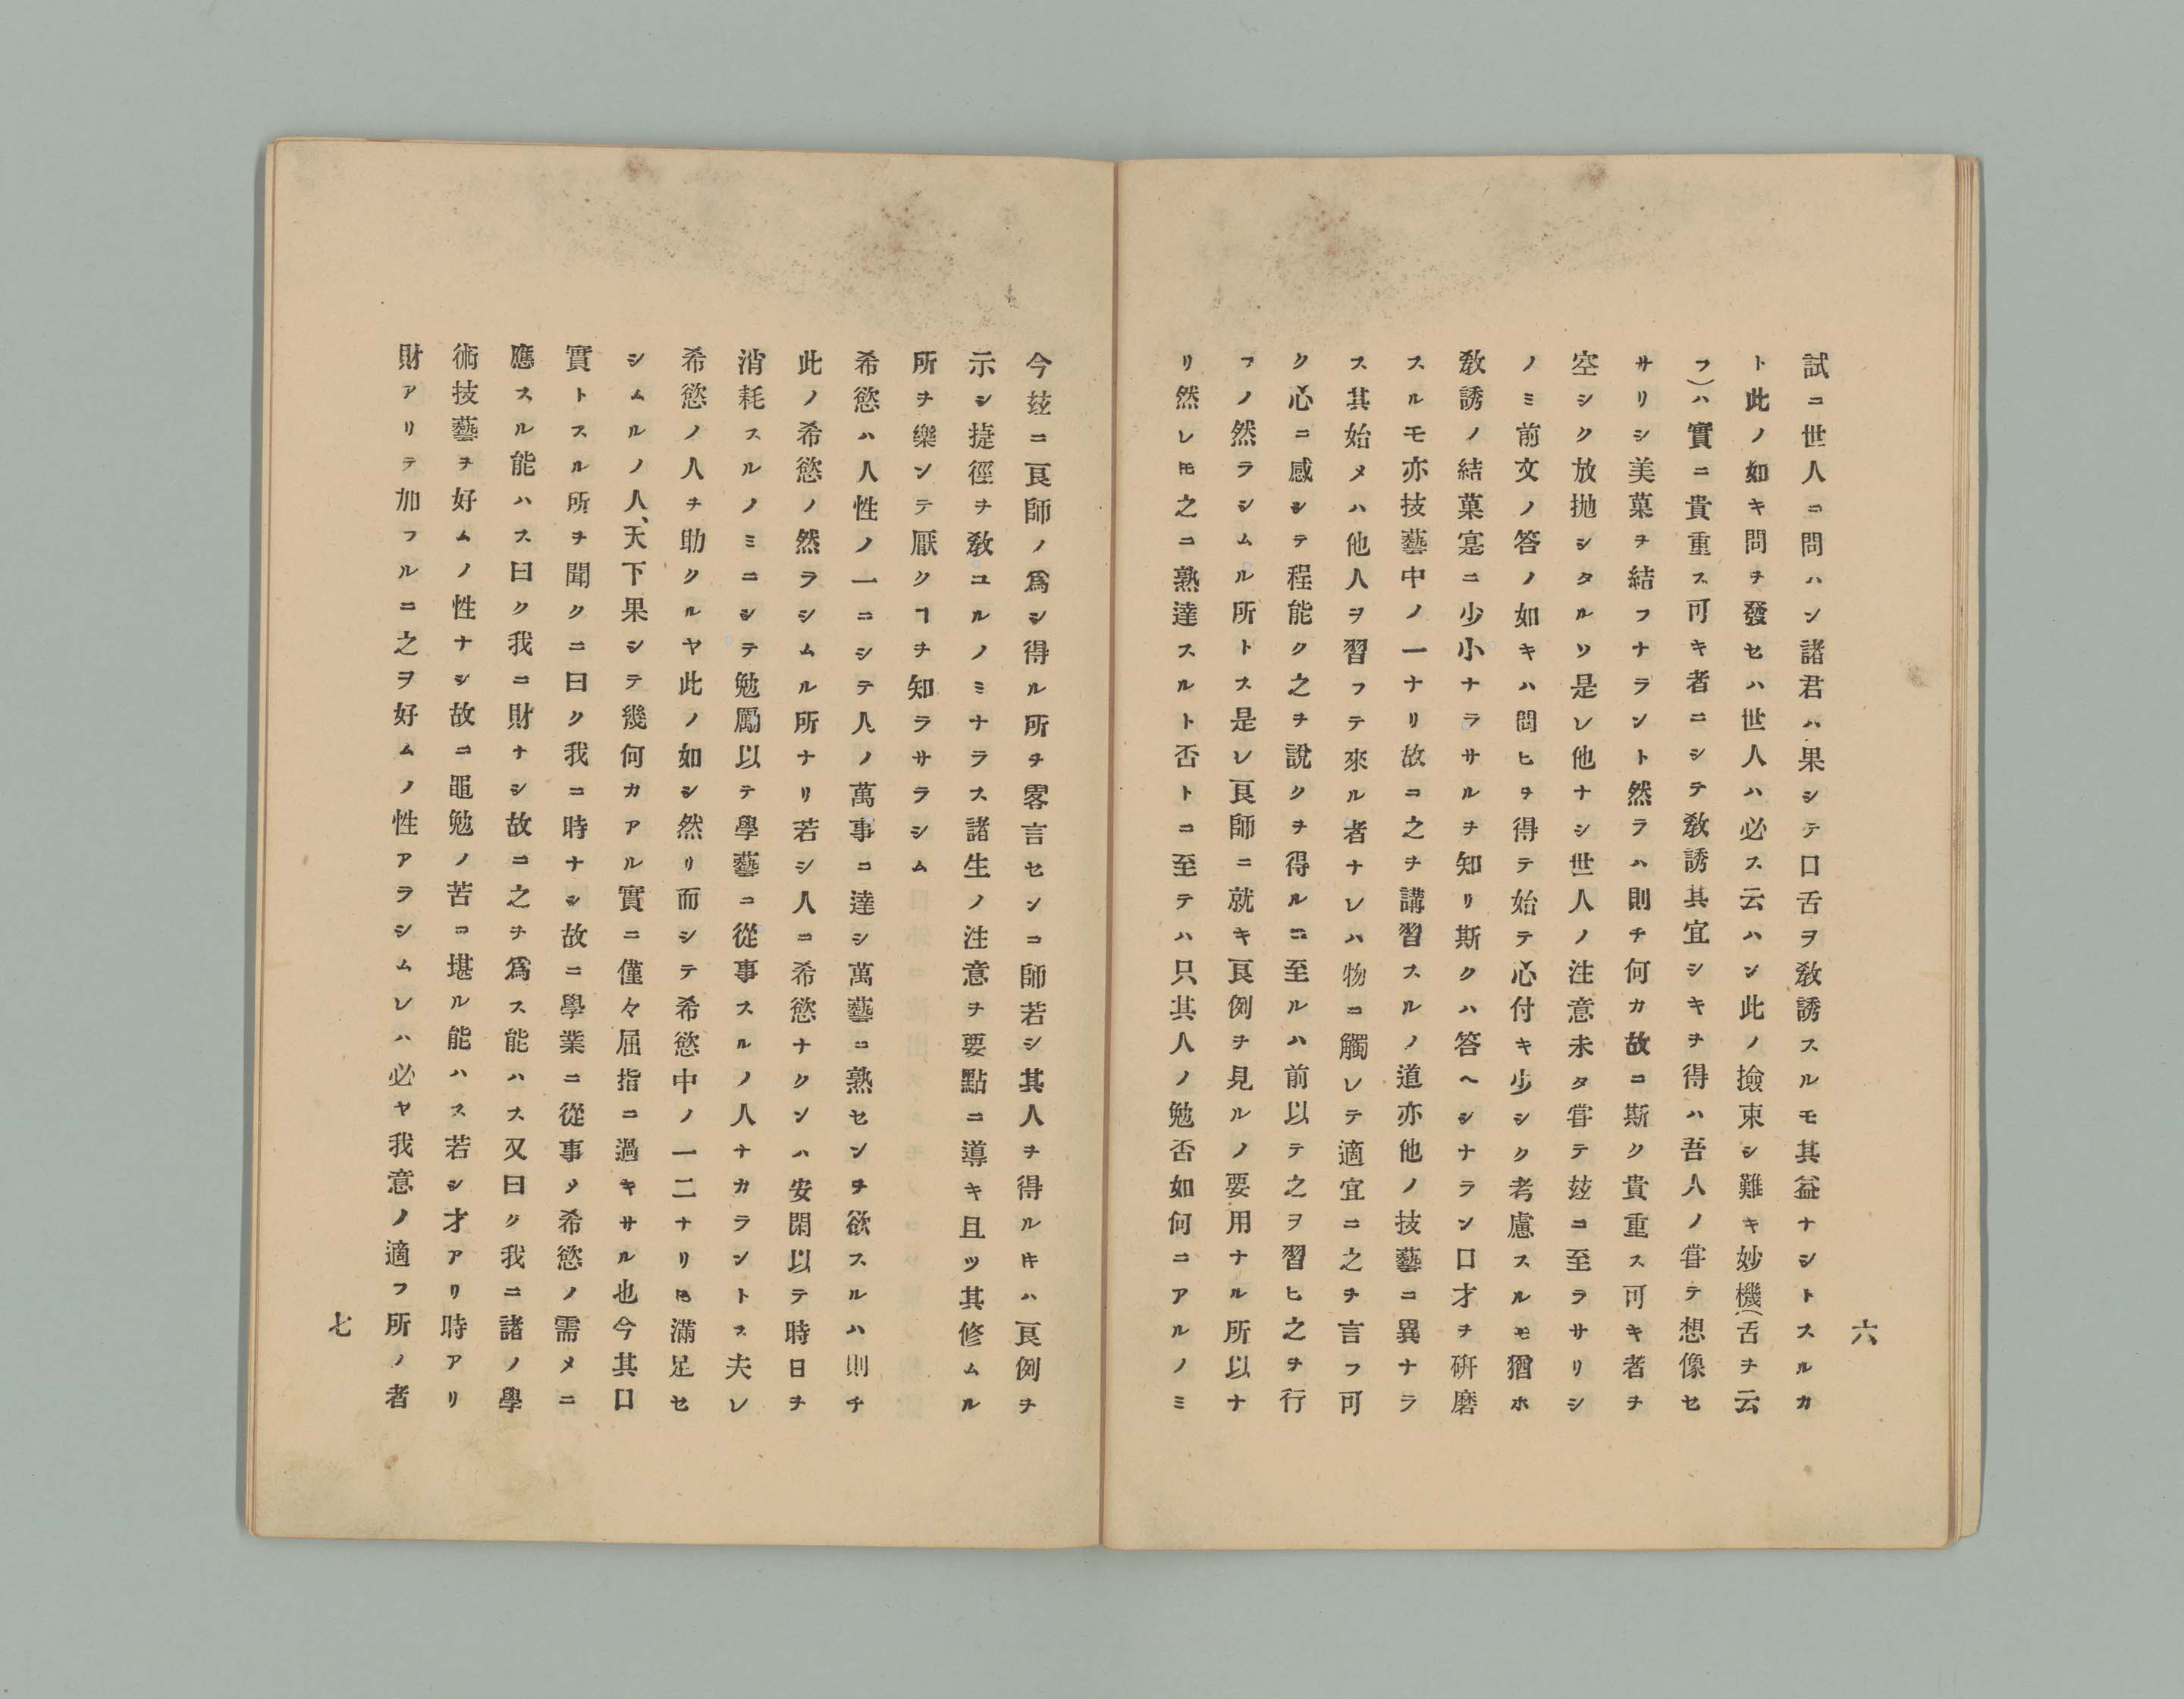 六
試ニ世人ニ問ハン諸君ハ果シテ口舌ヲ敎誘スルモ其益ナシトスルカ
ト此ノ如キ問ヲ發セハ世人ハ必ス云ハン此ノ撿束シ難キ妙機(舌ヲ云
フ)ハ實ニ貴重ス可キ者ニシテ敎誘其宜シキヲ得ハ吾人ノ嘗テ想像セ
サリシ美菓ヲ結フナラント然ラハ則チ何カ故ニ斯ク貴重ス可キ者ヲ
空シク放抛シタルソ是レ他ナシ世人ノ注意未タ嘗テ玆ニ至ラサリシ
ノミ前文ノ答ノ如キハ問ヒヲ得テ始テ心付キ少シク考慮スルモ猶ホ
敎誘ノ結菓寔ニ少小ナラサルヲ知リ斯クハ答ヘシナラン口才ヲ硏磨
スルモ亦技藝中ノ一ナリ故ニ之ヲ講習スルノ道亦他ノ技藝ニ異ナラ
ス其始メハ他人ヲ習フテ來ル者ナレハ物ニ觸レテ適宜ニ之ヲ言フ可
ク心ニ感シテ程能ク之ヲ說クヲ得ルニ至ルハ前以テ之ヲ習ヒ之ヲ行
フノ然ラシムル所トス是レ良師ニ就キ良例ヲ見ルノ要用ナル所以ナ
リ然レ𪜈之ニ熟達スルト否トニ至テハ只其人ノ勉否如何ニアルノミ
今玆ニ良師ノ爲シ得ル所ヲ畧言センニ師若シ其人ヲ得ルキハ良例ヲ
示シ捷徑ヲ敎ユルノミナラス諸生ノ注意ヲ要點ニ導キ且ツ其修ムル
所ヲ樂ンテ厭クヿヲ知ラサラシム
希慾ハ人性ノ一ニシテ人ノ萬事ニ達シ萬藝ニ熟センヲ欲スルハ則チ
此ノ希慾ノ然ラシムル所ナリ若シ人ニ希慾ナクンハ安閑以テ時日ヲ
消耗スルノミニシテ勉勵以テ學藝ニ從事スルノ人ナカラントス夫レ
希慾ノ人ヲ助クルヤ此ノ如シ然リ而シテ希慾中ノ一二ナリ𪜈滿足セ
シムルノ人、天下果シテ幾何カアル實ニ僅々屈指ニ過キサル也今其口
實トスル所ヲ聞クニ曰ク我ニ時ナシ故ニ學業ニ從事ノ希慾ノ需メニ
應スル能ハス曰ク我ニ財ナシ故ニ之ヲ爲ス能ハス又曰ク我ニ諸ノ學
術技藝ヲ好ムノ性ナシ故ニ黽勉ノ苦ニ堪ル能ハス若シ才アリ時アリ
財アリテ加フルニ之ヲ好ムノ性アラシムレハ必ヤ我意ノ適フ所ノ者
七